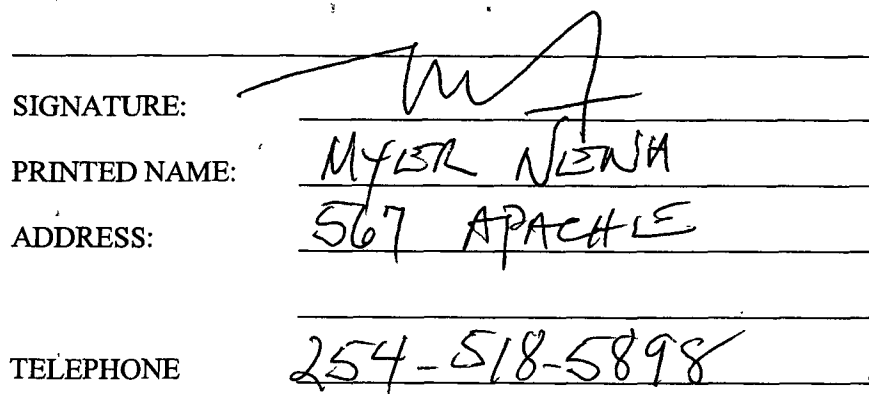 SIGNATURE:
PRINTED NAME: MYER NENA
ADDRESS: 567 APACHE
TELEPHONE 254-518-5898